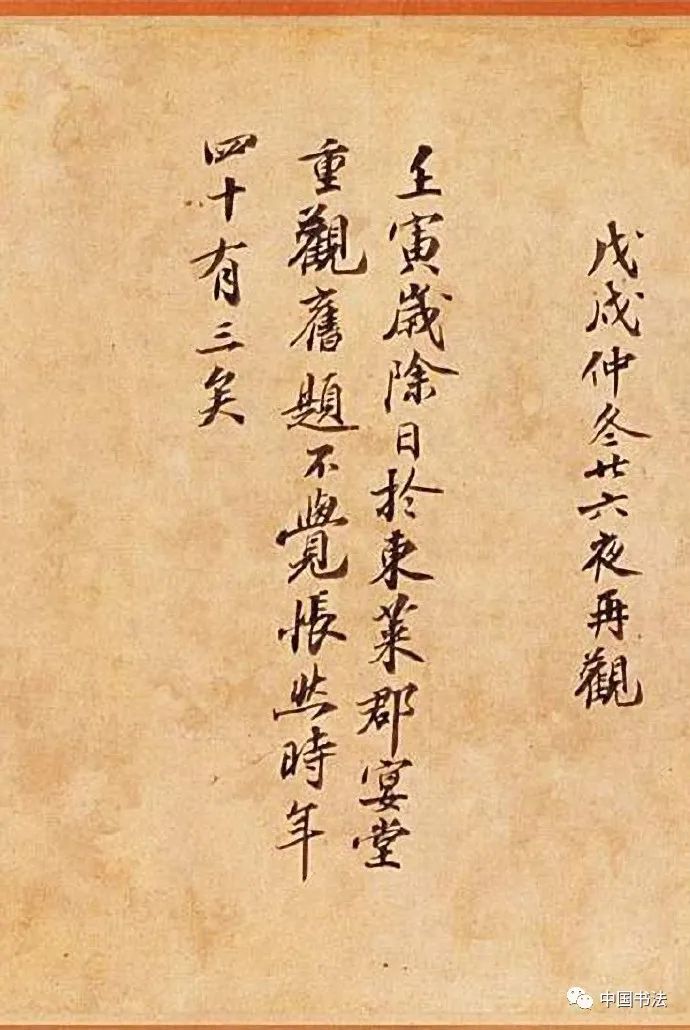 戊戌仲冬廿六夜再觀
壬寅歲除日於東萊郡宴堂
重觀舊題不覺悵然時年
四十有三矣
中国书法